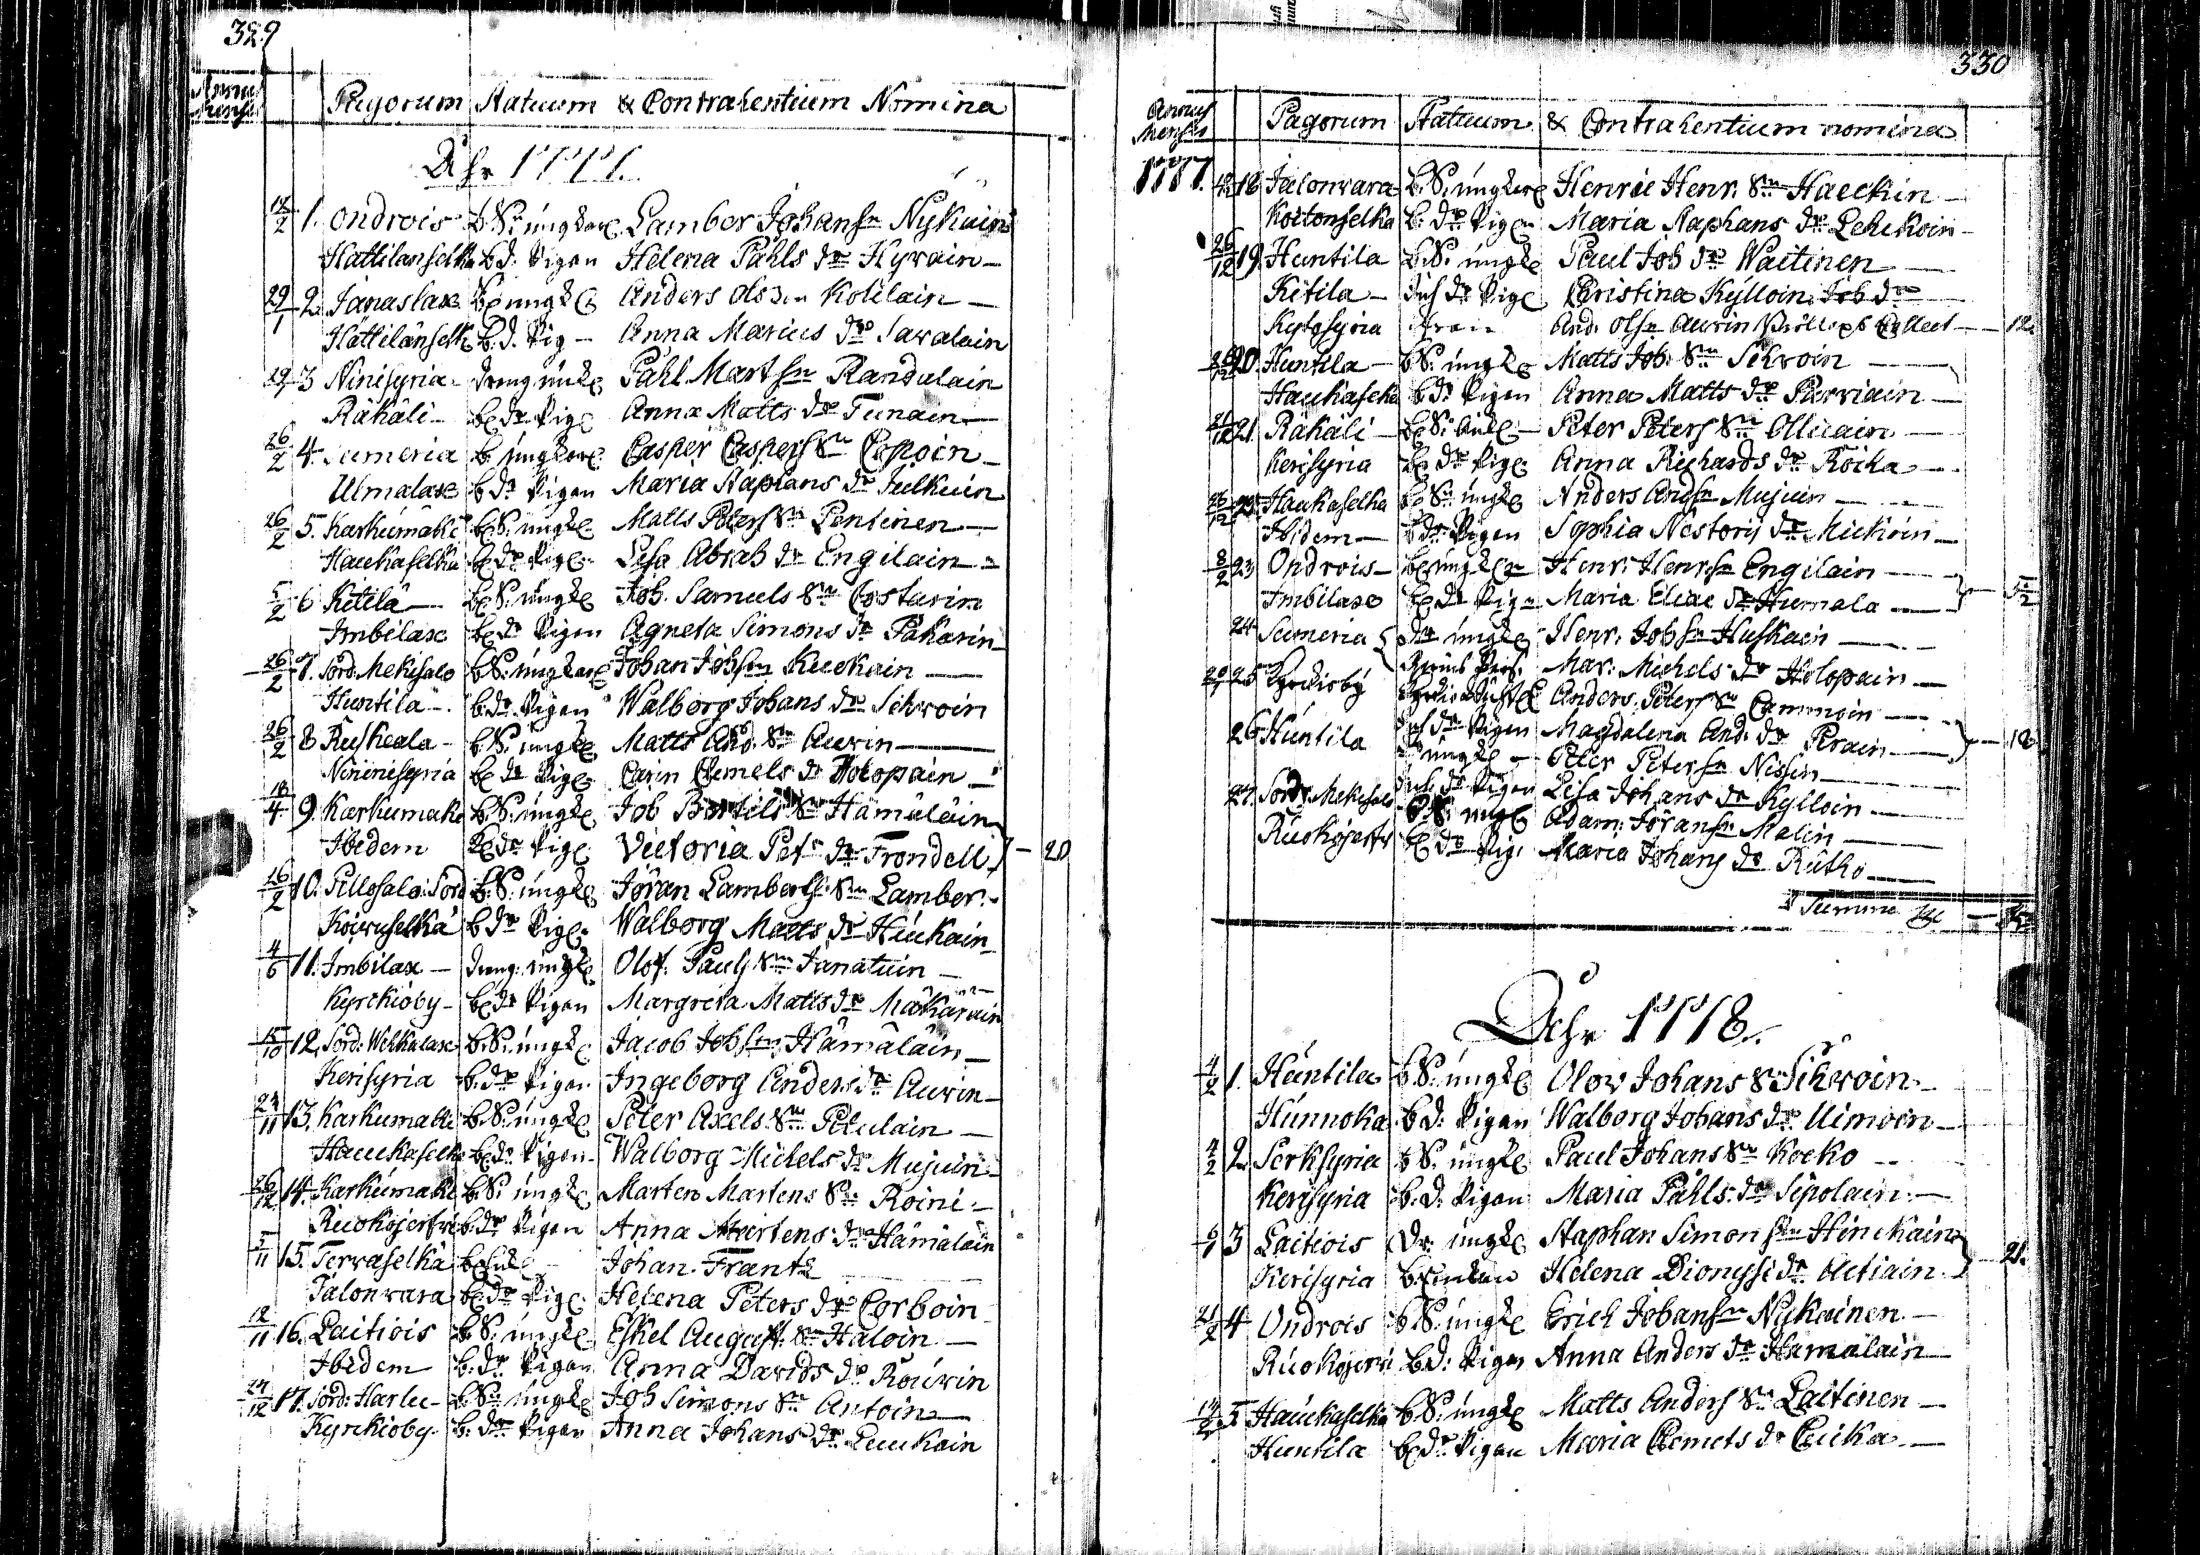 329
Annus Mensis
Pagorum Statuum & Contrahentium Nomina
Åhr 1777.
12/2 1. Ondrois b. Sn. ungkarl Lamber Johansn Nykain
Hattilanselka b. d. Pigan Helena Påhls dr Hyvain
29/1 2. Janaslax b. ungk. Anders Olsson Kolilain
Hattilänselk b. d. Pig Anna Marcus dr Savalain
19/1 3 Ninisyria dreng ungk. Påhl Mart sn Randulain
Räkäli b. dr Pig. Anna Matts dr Tunain
26/2 4. Sumeria b. ungkarl Casper Caspers Sn Espoin
Ulmalax b. dr Pigan Maria Staphans dr Julkuin
26/2 5. Karkumäki b. S. ungk. Matts Peters Sn Pentinen
Haukaselka b. dr Pig. Lisa Abrah dr Engilain
5/2 6 Kitilä b. S. ungk. Joh. Samuels Sn Costarin
Imbilax b. dr Pigan Agneta Simons dr Pakarin
26/2 7. Sord. Mekisalo b. S. ungkarl Johan Johsn Kuckain
Huntila b. dr Pigan Walborg Johans dr Sihvoin
26/2 8 Ruskeala b. S. ungk. Matts And. Sn Auvin
Ninisyria b. dr Pig. Carin Clemets dr Holopain
18/4 9. Karkumaki b. S. ungk. Job Bertils Sn Hämäläin
Ibidem b. dr Pig. Victoria Pet. dr Frondell 20
16/2 10. Pellosalo: Sord b. S. ungk. Jöran Lamberts Sn Lamber
Koiruselkä b. dr Pig. Walborg Matts dr Hiukain
4/6 11. Imbilax dreng ungk. Olof. Pauls Sn Janatuin
Kyrckioby b. dr Pigan Margreta Matts dr Mäkäräin
15/10 12. Sord: Wehkalax b. S. ungk. Jacob Johsn Hämäläin
Kerisyria b. dr Pigan Ingeborg Anders dr Auvin
24/11 13. Karkumaki b. S. ungk. Peter Axels Sn Pelulain
Haukaselka b. dr Pigan Walborg Michels dr Mujuin
26/12 14. Karkumaki b. S. ungk. Marten Martens Sn Roini
Ruokojerfvi b. dr Pigan Anna Martens dr Hämäläin
5/11 15. Tervaselka Johan Frantz
Jalonvara b. dr Pig. Helena Peters dr Corboin
12/11 16. Laitiois b. S. ungk. Eskel August. Sn Haloin
Ibidem b. dr Pigan Anna Davids dr Rouvin
27/12 17. Sord: Harlu b. Sn ungk. Joh Simons Sn Antoin
Kyrckioby b. dr Pigan Anna Johans dr Leuckain
330
Annus Mensis
Pagorum Statuum & Contrahentium nomina
1777. 18 Jalonvara b. S. ungkarl Henric Henr. Sn Haeckin
Koitonselka b. dr Pigan Maria Staphans dr Lehikoin
26/12 19. Huntila b. S. ungk. Paul Joh dr Waitinen
Kitila Inh dr Pig. Christina Kylloin Joh dr
Kytösyria And. Olsn Auvin 12
26/12 20. Huntila b. S. ungk. Matts Joh. Sn Sihvoin
Haukaselka b. dr Pigan Anna Matts dr Purviain
21. Räkäli b. S. Peter Peters Sn Ollicain
Kerisyria b. dr Pig. Anna Richards dr Roika
26/12 22. Haukaselka b. Sn ungk. Anders Andsn Mujuin
Ibidem b. dr Pigan Sophia Nestorij dr Mickoin
8/2 23 Ondrois b. ungk. Henr. Henrsn Engilain
Imbilax b. dr Pig. Maria Eliae dr Humala
24 Sumeria dr ungk. Henr. Johsn Huskain
Mar: Michels dr Holopain
25 Kyrckioby Anders. Peters Sn Cammoin
Inh dr Pigan Magdalena And. dr Pirain
26 Huntila ungk. Peter Petersn Nissin
Inh. dr Pigan Lisa Johans dr Kylloin
27. Sord: Mekisalo b. S. ungk. Adam. Joransn Malin
Ruokojerfvi b. dr Pig. Maria Johans dr Rutho
Summa
Åhr 1778.
4/2 1. Huntila b. S. ungk. Olov Johans Sn Sihvoin
Hunnoka b. d. Pigan Walborg Johans dr Uimoin
4/2 2. Serksyria b S. ungk. Paul Johans Sn Kocko
Kerisyria b. d. Pigan Maria Påhls dr Sepolain
6/1 3 Laitiois Dr. ungk. Staphan Simon sn Hinckain
Kerisyria b. Enkan Helena Dionysi dr Astiain 21.
21/2 4 Ondrois b S. ungk. Erich Johansn Nykainen
Ruokojervi b. d. Pigan Anna Anders dr Hamalain
14/2 5. Haukaselka b. S. ungk. Matts Anders Sn Laitinen
Huntila b. dr Pigan Maria Clemets dr Cuicka